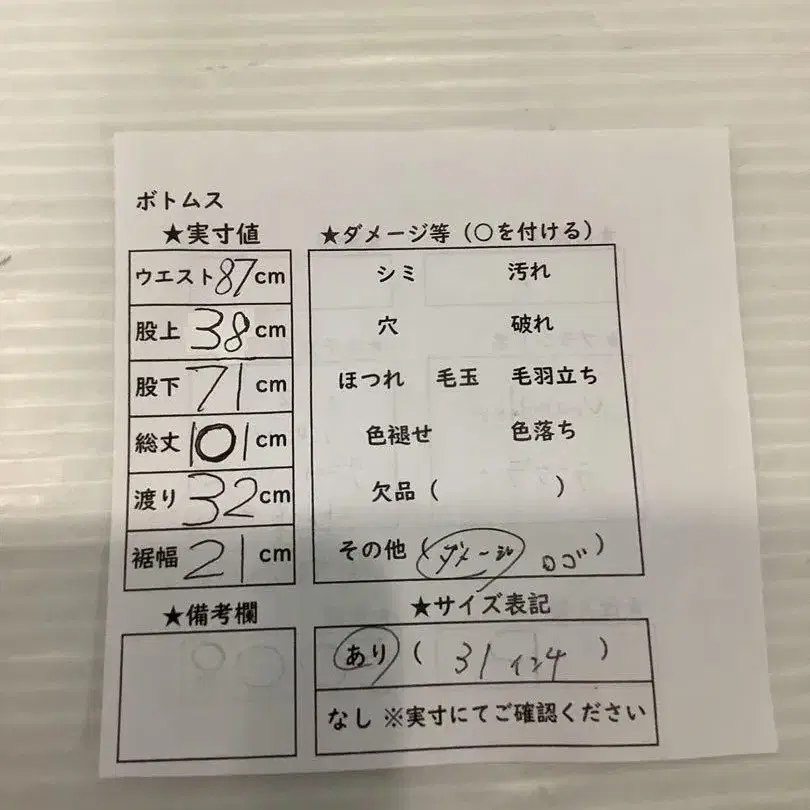 ボトムス
★実寸値
ウエスト87cm
股上 38cm
股下 71cm
総丈 101cm
渡り 32cm
裾幅 21cm
★備考欄
★ダメージ等（○を付ける）
シミ 汚れ
穴 破れ
ほつれ 毛玉 毛羽立ち
色褪せ 色落ち
欠品（ ）
その他（ダメージ ロゴ）
★サイズ表記
あり（ 31 ）
なし ※実寸にてご確認ください